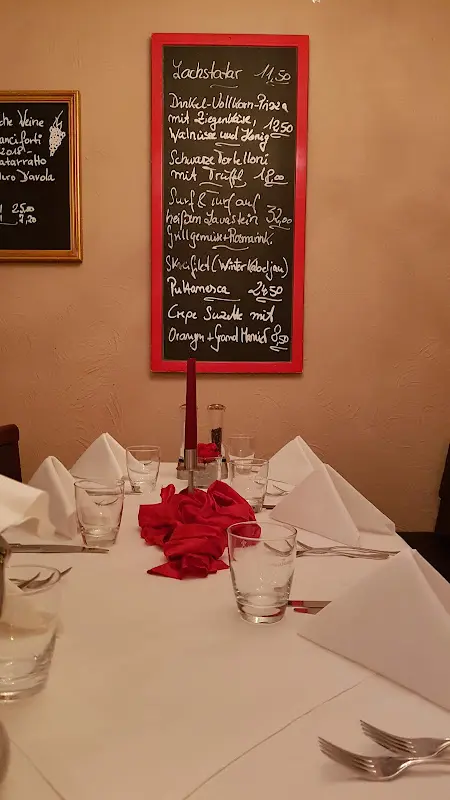 che Weine
anciforti
2018 -
atarratto
Nero D'avola
25,00
7,20
Lachstatar 11,50
Dinkel-Vollkorn-Pizza
mit Ziegenkäse,
Walnüsse und Honig 12,50
Schwarze Tortelloni
mit Trüffel 18,00
Surf & Turf auf
heißen Lavastein 32,00
Grillgemüse + Rosmarink.
Skreifilet (Winterkabeljau)
Puttanesca 24,50
Crepe Suzette mit
Orangen + Grand Manier 8,50